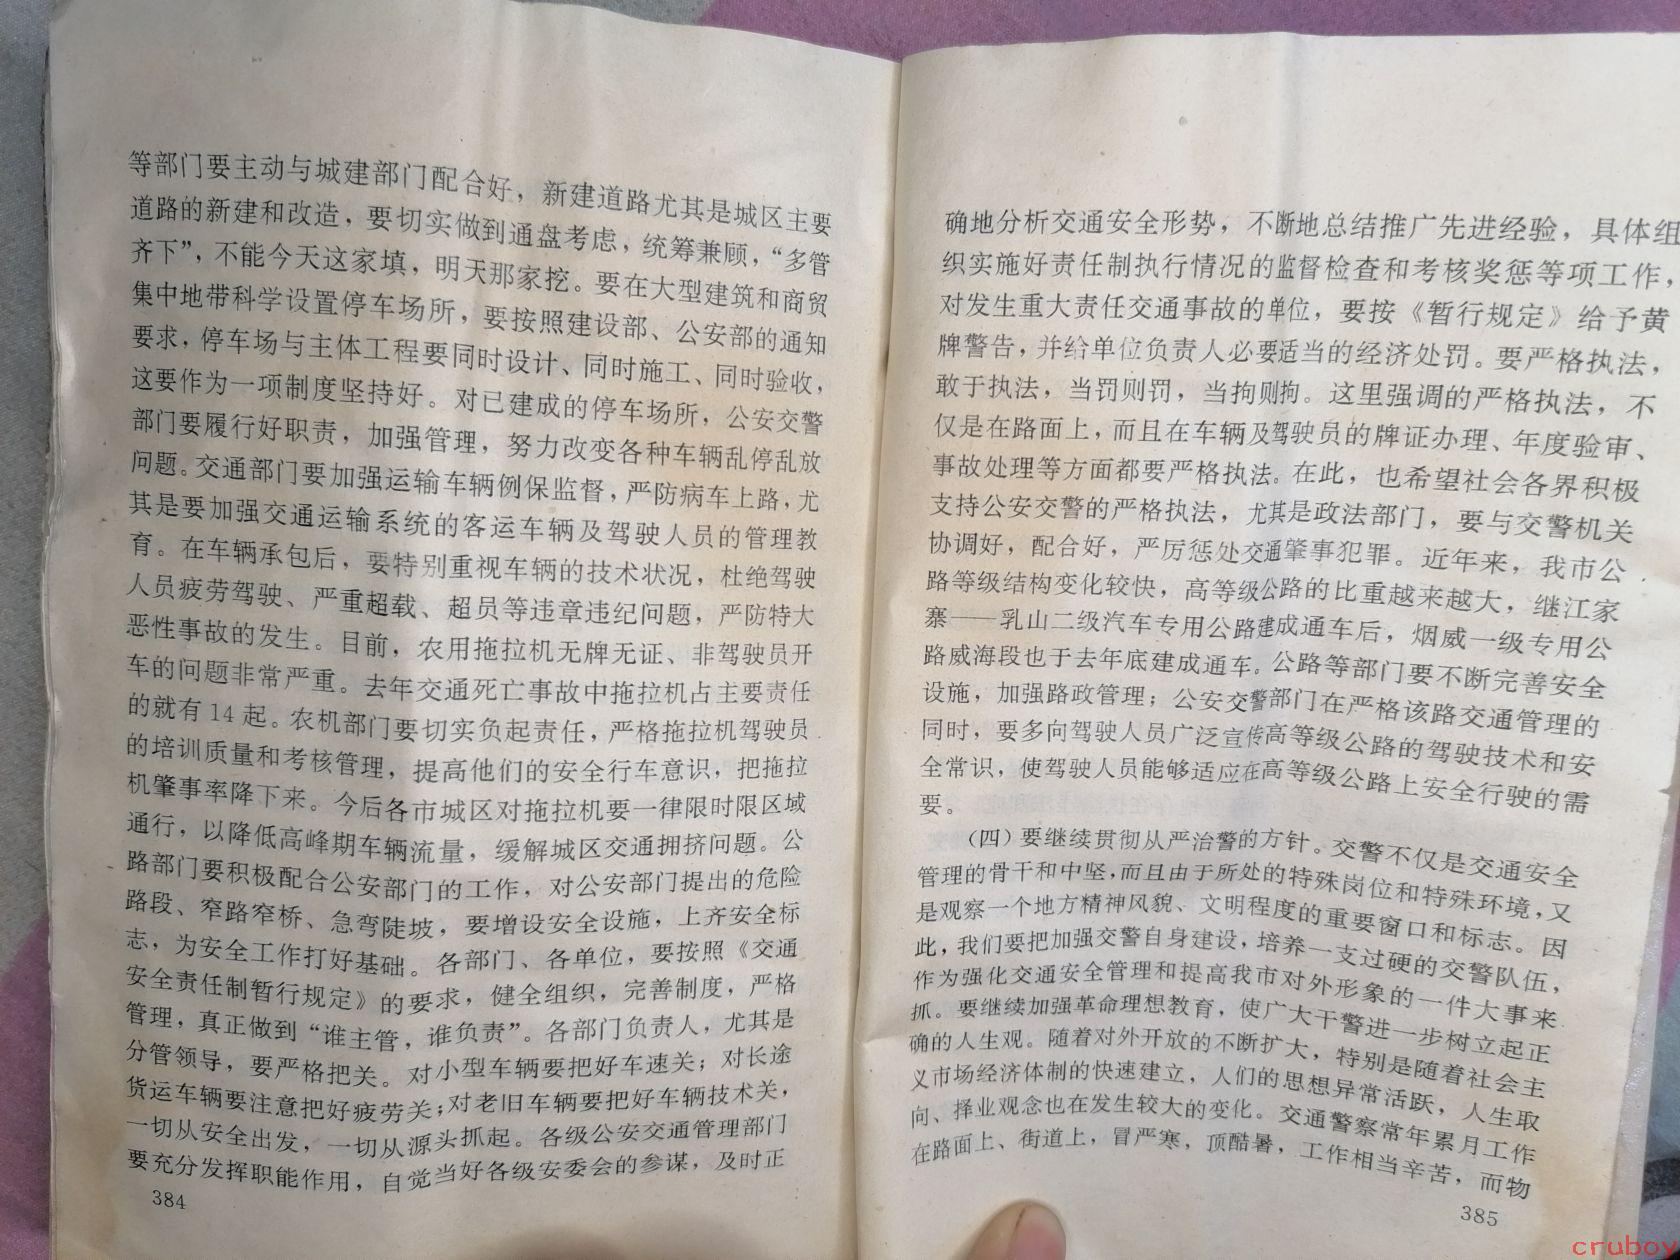 等部门要主动与城建部门配合好，新建道路尤其是城区主要
道路的新建和改造，要切实做到通盘考虑，统筹兼顾，“多管
齐下”，不能今天这家填，明天那家挖。要在大型建筑和商贸
集中地带科学设置停车场所，要按照建设部、公安部的通知
要求，停车场与主体工程要同时设计、同时施工、同时验收，
这要作为一项制度坚持好。对已建成的停车场所，公安交警
部门要履行好职责，加强管理，努力改变各种车辆乱停乱放
问题。交通部门要加强运输车辆例保监督，严防病车上路，尤
其是要加强交通运输系统的客运车辆及驾驶人员的管理教
育。在车辆承包后，要特别重视车辆的技术状况，杜绝驾驶
人员疲劳驾驶、严重超载、超员等违章违纪问题，严防特大
恶性事故的发生。目前，农用拖拉机无牌无证、非驾驶员开
车的问题非常严重。去年交通死亡事故中拖拉机占主要责任
的就有14起。农机部门要切实负起责任，严格拖拉机驾驶员
的培训质量和考核管理，提高他们的安全行车意识，把拖拉
机肇事率降下来。今后各市城区对拖拉机要一律限时限区域
通行，以降低高峰期车辆流量，缓解城区交通拥挤问题。公
路部门要积极配合公安部门的工作，对公安部门提出的危险
路段、窄路窄桥、急弯陡坡，要增设安全设施，上齐安全标
志，为安全工作打好基础。各部门、各单位，要按照《交通
安全责任制暂行规定》的要求，健全组织，完善制度，严格
管理，真正做到“谁主管，谁负责”。各部门负责人，尤其是
分管领导，要严格把关。对小型车辆要把好车速关；对长途
货运车辆要注意把好疲劳关；对老旧车辆要把好车辆技术关，
一切从安全出发，一切从源头抓起。各级公安交通管理部门
要充分发挥职能作用，自觉当好各级安委会的参谋，及时正
384
确地分析交通安全形势，不断地总结推广先进经验，具体组
织实施好责任制执行情况的监督检查和考核奖惩等项工作，
对发生重大责任交通事故的单位，要按《暂行规定》给予黄
牌警告，并给单位负责人必要适当的经济处罚。要严格执法，
敢于执法，当罚则罚，当拘则拘。这里强调的严格执法，不
仅是在路面上，而且在车辆及驾驶员的牌证办理、年度验审、
事故处理等方面都要严格执法。在此，也希望社会各界积极
支持公安交警的严格执法，尤其是政法部门，要与交警机关
协调好，配合好，严厉惩处交通肇事犯罪。近年来，我市公
路等级结构变化较快，高等级公路的比重越来越大，继江家
寨——乳山二级汽车专用公路建成通车后，烟威一级专用公
路威海段也于去年底建成通车。公路等部门要不断完善安全
设施，加强路政管理；公安交警部门在严格该路交通管理的
同时，要多向驾驶人员广泛宣传高等级公路的驾驶技术和安
全常识，使驾驶人员能够适应在高等级公路上安全行驶的需
要。
（四）要继续贯彻从严治警的方针。交警不仅是交通安全
管理的骨干和中坚，而且由于所处的特殊岗位和特殊环境，又
是观察一个地方精神风貌、文明程度的重要窗口和标志。因
此，我们要把加强交警自身建设，培养一支过硬的交警队伍，
作为强化交通安全管理和提高我市对外形象的一件大事来
抓。要继续加强革命理想教育，使广大干警进一步树立起正
确的人生观。随着对外开放的不断扩大，特别是随着社会主
义市场经济体制的快速建立，人们的思想异常活跃，人生取
向、择业观念也在发生较大的变化。交通警察常年累月工作
在路面上、街道上，冒严寒，顶酷暑，工作相当辛苦，而物
385
cruboy